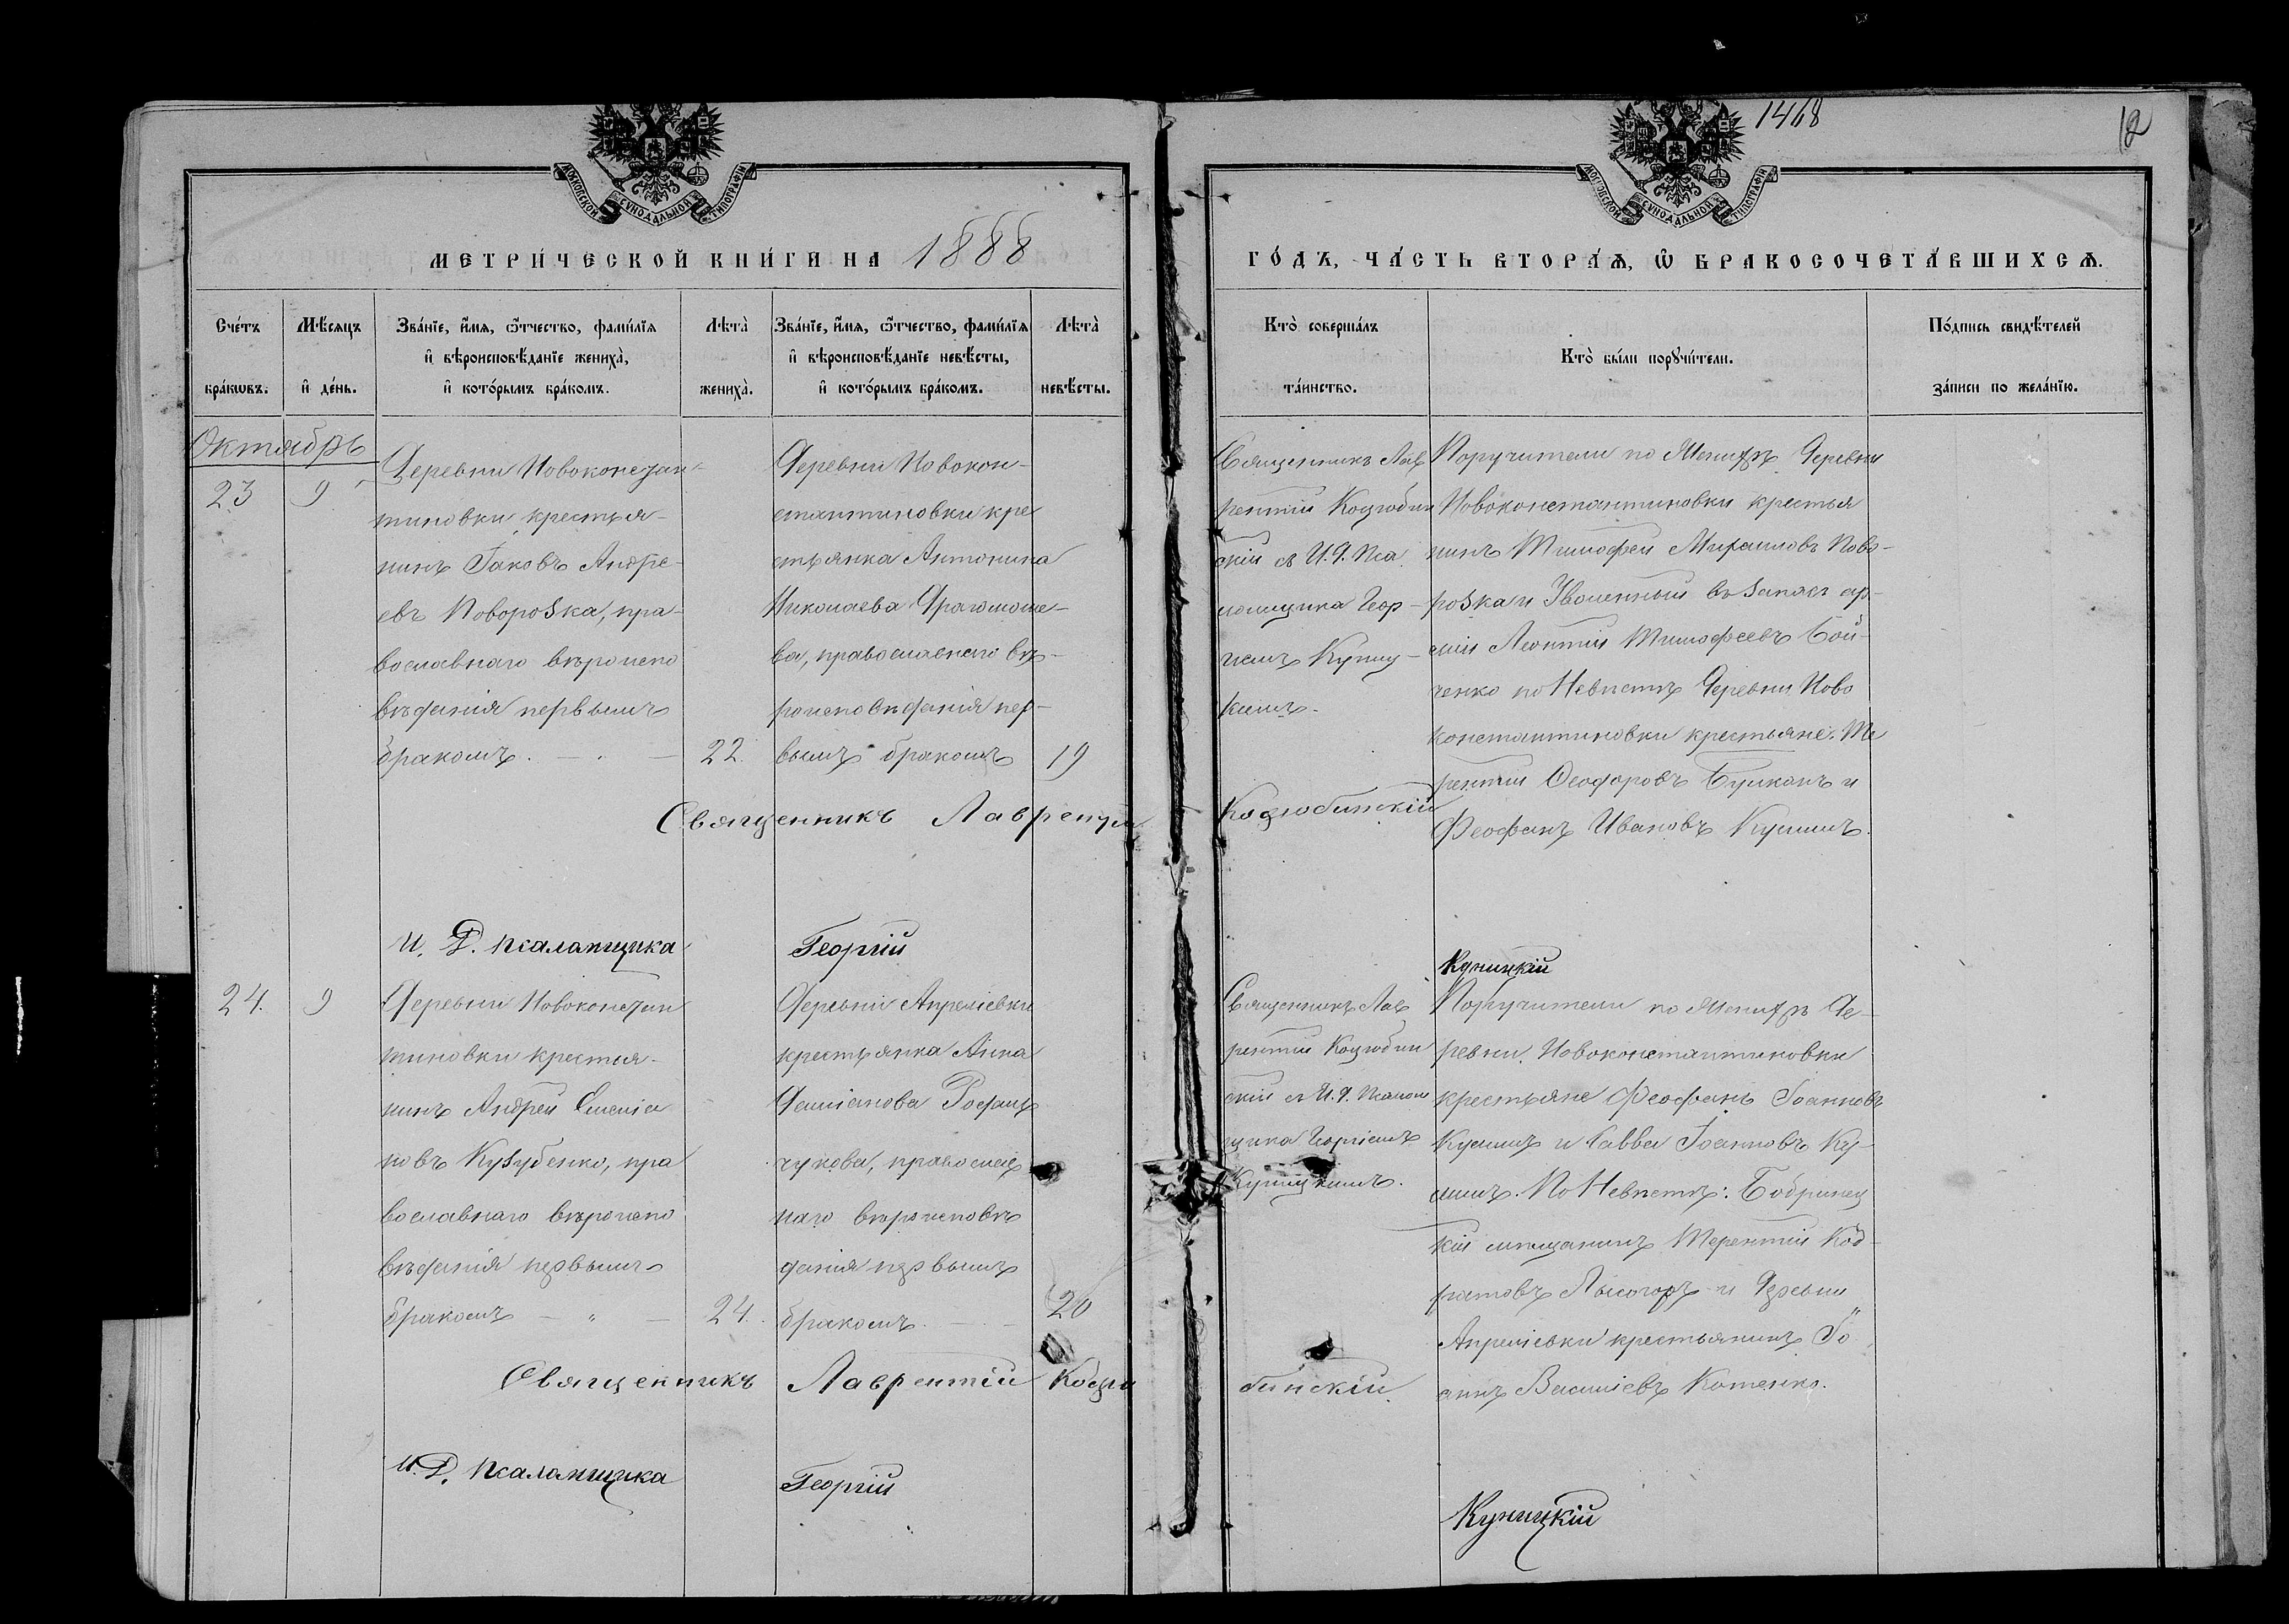 1468
12
МОСКОВСКОЙ СѴНОДАЛЬНОЙ ТИПОГРАФІИ
МОСКОВСКОЙ СѴНОДАЛЬНОЙ ТИПОГРАФІИ
МЕТРИ́ЧЕСКОЙ КНИ́ГИ НА 1888
ГО́ДЪ, ЧА́СТЬ ВТОРА́Ѧ, Ѽ БРАКОСОЧЕТА́ВШИХСѦ.
Сче́тъ
бра́кѡвъ.
Мѣ́сяцъ
и҆ де́нь.
Зва́нїе, и҆́мя, ѻ҆́тчество, фами́лїя
и҆ вѣроисповѣ́данїе жениха̀,
и҆ кото́рымъ бра́комъ.
Лѣта̀
жениха̀.
Зва́нїе, и҆́мя, ѻ҆́тчество, фами́лїя
и҆ вѣроисповѣ́данїе невѣ́сты,
и҆ кото́рымъ бра́комъ.
Лѣта̀
невѣ́сты.
Кто̀ соверша́лъ
та́инство.
Кто̀ бы́ли порꙋчи́тели.
По́дпись свидѣ́телей
за́писи по жела́нїю.
Октябрь
23
9
Деревни Новоконстан-
тиновки крестья-
нинъ Іаковъ Андре-
евъ Поворозка, пра-
вославнаго вѣроиспо
вѣданія первымъ
бракомъ.
22.
Деревни Новокон-
стантиновки кре
стьянка Антонина
Николаева Драгомоше-
ва, православнаго вѣ-
роисповѣданія пер-
вымъ бракомъ
19
Священникъ Лав
рентій Коцюбин
скій съ И. Д. Пса
ломщика Геор-
гіемъ Куниц-
кимъ.
Поручители по Женихѣ Деревни
Новоконстантиновки крестья
нинъ Тимофей Михаиловъ Пово-
розка и Уволенный въ запасъ ар-
міи Леонтій Тимофеевъ Бой-
ченко по Невѣстѣ Деревни Ново
константиновки крестьяне: Те
рентій Феодоровъ Булканъ и
Феофанъ Ивановъ Кушниръ.
Священникъ Лаврентій Коцюбинскій
И. Д. Псаломщика Георгій Куницкій
24.
9
Деревни Новоконстан
тиновки крестья-
нинъ Андрей Емелiа
новъ Кузубенко, пра
вославнаго вѣроиспо
вѣданія первымъ
бракомъ
24.
Деревни Апреліевки
крестьянка Анна
Даміанова
чукова, православ
наго вѣроисповѣ
данія первымъ
бракомъ.
20
Священникъ Лав
рентій Коцюбин
скій съ И. Д. Псалом
щика Георгіемъ
Куницкимъ.
Поручители по Женихѣ Де-
ревни Новоконстантиновки
крестьяне Феофанъ Іоанновъ
и Савва Іоанновъ
По Невѣстѣ: Бобринец
кій мѣщанинъ Терентій Код-
ратовъ Лысогоръ и Деревни
Апреліевки крестьянинъ Іо
аннъ Василіевъ Котенко.
Священникъ Лаврентій Коцю бинскій
И. Д. Псаломщика Георгій Куницкій